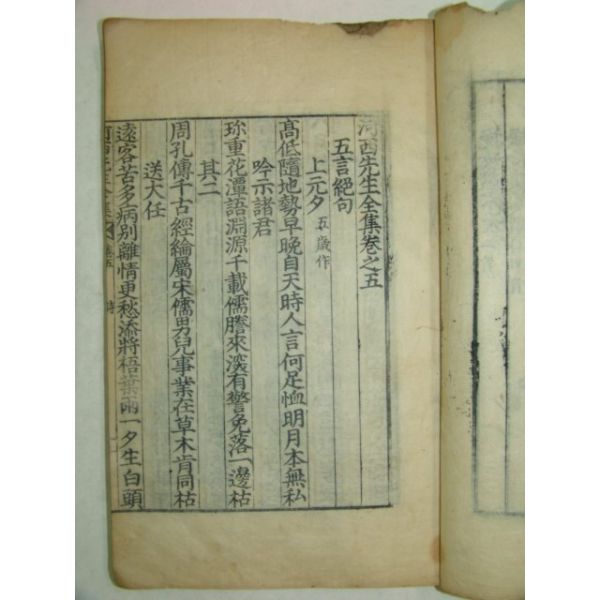 河西先生全集卷之五
五言絕句
上元夕 五歲作
高低隨地勢早晩自天時人言何足恤明月本無私
吟示諸君
珎重花潭語淵源千載儒謄來深有警免落一邊枯
其二
周孔傳千古經綸屬宋儒男兒事業在草木肯同枯
送大任
遠客苦多病別離情更愁添將梧葉雨一夕生白頭